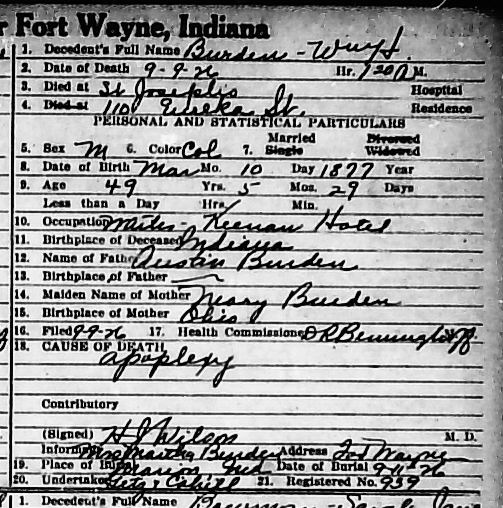 r Fort Wayne, Indiana
1. Decedent's Full Name Burden - Wm H.
2. Date of Death 9-9-26 Hr. 1 30 A M.
3. Died at St Josephs Hospital
4. Died at 110 Eureka St. Residence
PERSONAL AND STATISTICAL PARTICULARS
Married Divorced
5. Sex M 6. Color Col 7. Single Widowed
8. Date of Birth Mar Mo. 10 Day 1877 Year
9. Age 49 Yrs. 5 Mos. 29 Days
Less than a Day Hrs. Min.
10. Occupation Keenan Hotel
11. Birthplace of Deceased Indiana
12. Name of Father Austin Burden
13. Birthplace of Father —
14. Maiden Name of Mother Mary Burden
15. Birthplace of Mother Ohio
16. Filed 9-9-26 17. Health Commissioner
18. CAUSE OF DEATH
apoplexy
Contributory
(Signed) H J Wilson M. D.
Informant Mrs Martha Burden Address Fort Wayne
19. Place of Burial Marion Ind Date of Burial 9-11-26
20. Undertaker Getz & Cahill 21. Registered No. 939
1. Decedent's Full Name